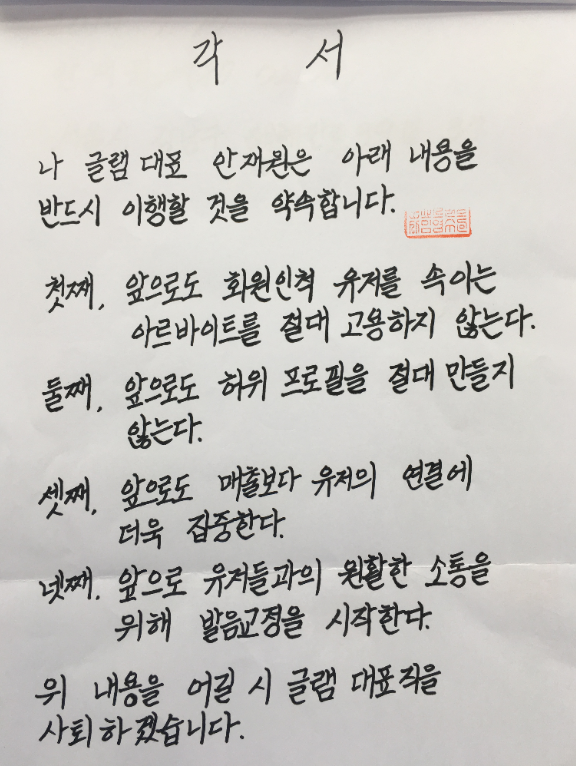 각 서
나 글램 대표 안재원은 아래 내용을
반드시 이행할 것을 약속합니다.
첫째, 앞으로도 회원인척 유저를 속이는
아르바이트를 절대 고용하지 않는다.
둘째, 앞으로도 허위 프로필을 절대 만들지
않는다.
셋째, 앞으로도 매출보다 유저의 연결에
더욱 집중한다.
넷째, 앞으로 유저들과의 원활한 소통을
위해 발음교정을 시작한다.
위 내용을 어길 시 글램 대표직을
사퇴하겠습니다.